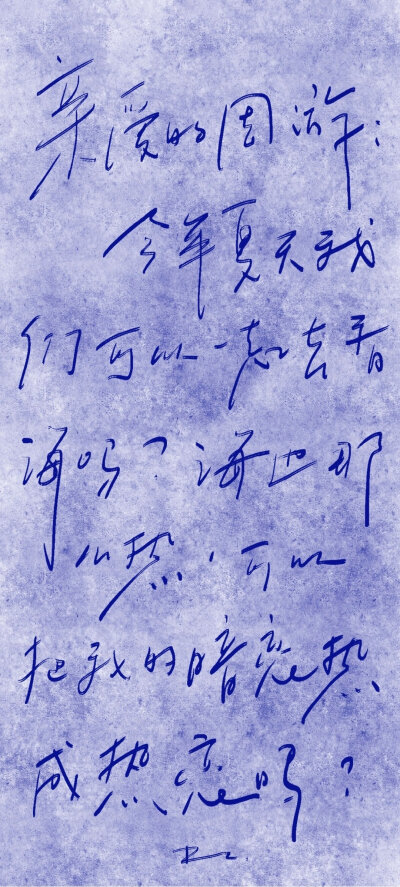 亲爱的周游:
今年夏天我
们可以一起去看
海吗?海边那
么热,可以
把我的暗恋热
成热恋吗?